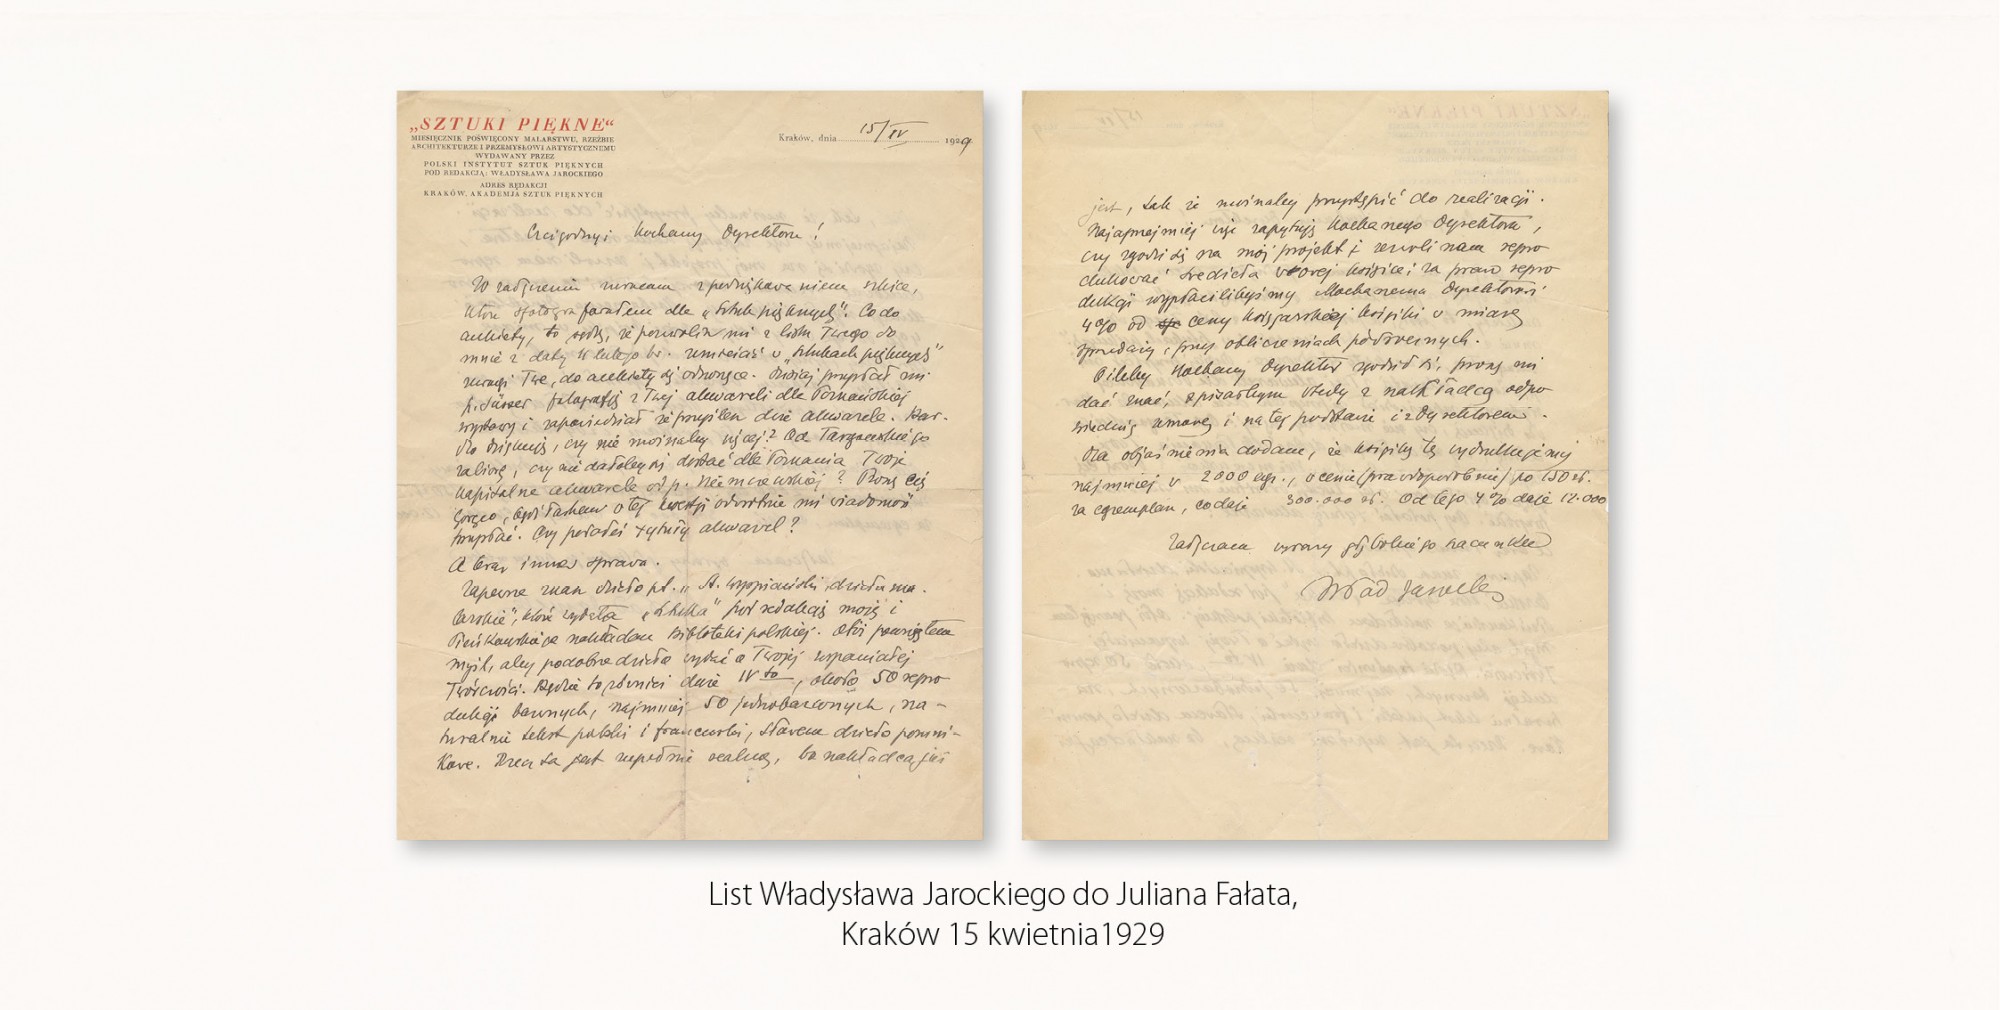 „SZTUKI PIĘKNE“
MIESIĘCZNIK POŚWIĘCONY MALARSTWU, RZEŹBIE
ARCHITEKTURZE I PRZEMYSŁOWI ARTYSTYCZNEMU
WYDAWANY PRZEZ
POLSKI INSTYTUT SZTUK PIĘKNYCH
POD REDAKCJĄ: WŁADYSŁAWA JAROCKIEGO
ADRES REDAKCJI
KRAKÓW, AKADEMJA SZTUK PIĘKNYCH
Kraków, dnia 15/IV 1929
Czcigodny i Kochany Dyrektorze!
W załączeniu zwracam z podziękowaniem szkice,
które sfotografowałem dla „Sztuk pięknych”. Co do
ankiety, to sądzę, że pozwolisz mi z listu Twego do
mnie z daty lutego br. umieścić w „Sztukach pięknych”
uwagi Twe, do ankiety się odnoszące. Dzisiaj przysłał mi
p. fotografję z Twej akwareli dla Poznańskiej
wystawy i zapowiedział że przyśle dwie akwarele. Bar-
dzo dziękuję, czy nie można by więcej? Od
czy nie dałoby się dostać dla Poznania Twoje
kapitalne akwarele od p. Niemczewskiej? Proszę Cię
gorąco, bądź łaskaw o tej kwestji odwrotnie mi wiadomość
przysłać. Czy podałeś tytuły akwarel?
A teraz inna sprawa.
Zapewne znasz dzieło p.t. „St. Wyspiański, dzieła ma-
larskie”, które wydała „Sztuka” pod redakcją moją i
Pieńkowskiego nakładem Bibljoteki polskiej. Otóż powziąłem
myśl, aby podobne dzieło wydać o Twojej wspaniałej
Twórczości. Będzie to również duże IV to, około 50 repro
dukcji barwnych, najmniej 50 jednobarwnych, na-
turalnie tekst polski i francuski, słowem dzieło pomni-
kowe. Rzecz ta jest zupełnie realną, bo nakładca już
jest, tak że można by przystąpić do realizacji.
Najuprzejmiej więc zapytuję Kochanego Dyrektora,
czy zgodzi się na mój projekt i zezwoli nam repro
dukować dzieła w owej książce; za prawo repro
dukcji wypłacilibyśmy Kochanemu Dyrektorowi
4% od ceny księgarskiej książki w miarę
sprzedaży, przy obliczeniach półrocznych.
O ileby Kochany Dyrektor zgodził się, proszę mi
dać znać, spisałbym wtedy z nakładcą odpo
wiednią umowę i na tej podstawie i z Dyrektorem.
Dla objaśnienia dodam, że książkę tę wydrukujemy
najmniej w 2000 egz., w cenie (prawdopodobnie) po 150 zł.
za egzemplarz, co daje 300.000 zł. Od tego 4% daje 12.000
Załączam wyrazy głębokiego szacunku
Wład Jarocki
List Władysława Jarockiego do Juliana Fałata,
Kraków 15 kwietnia1929